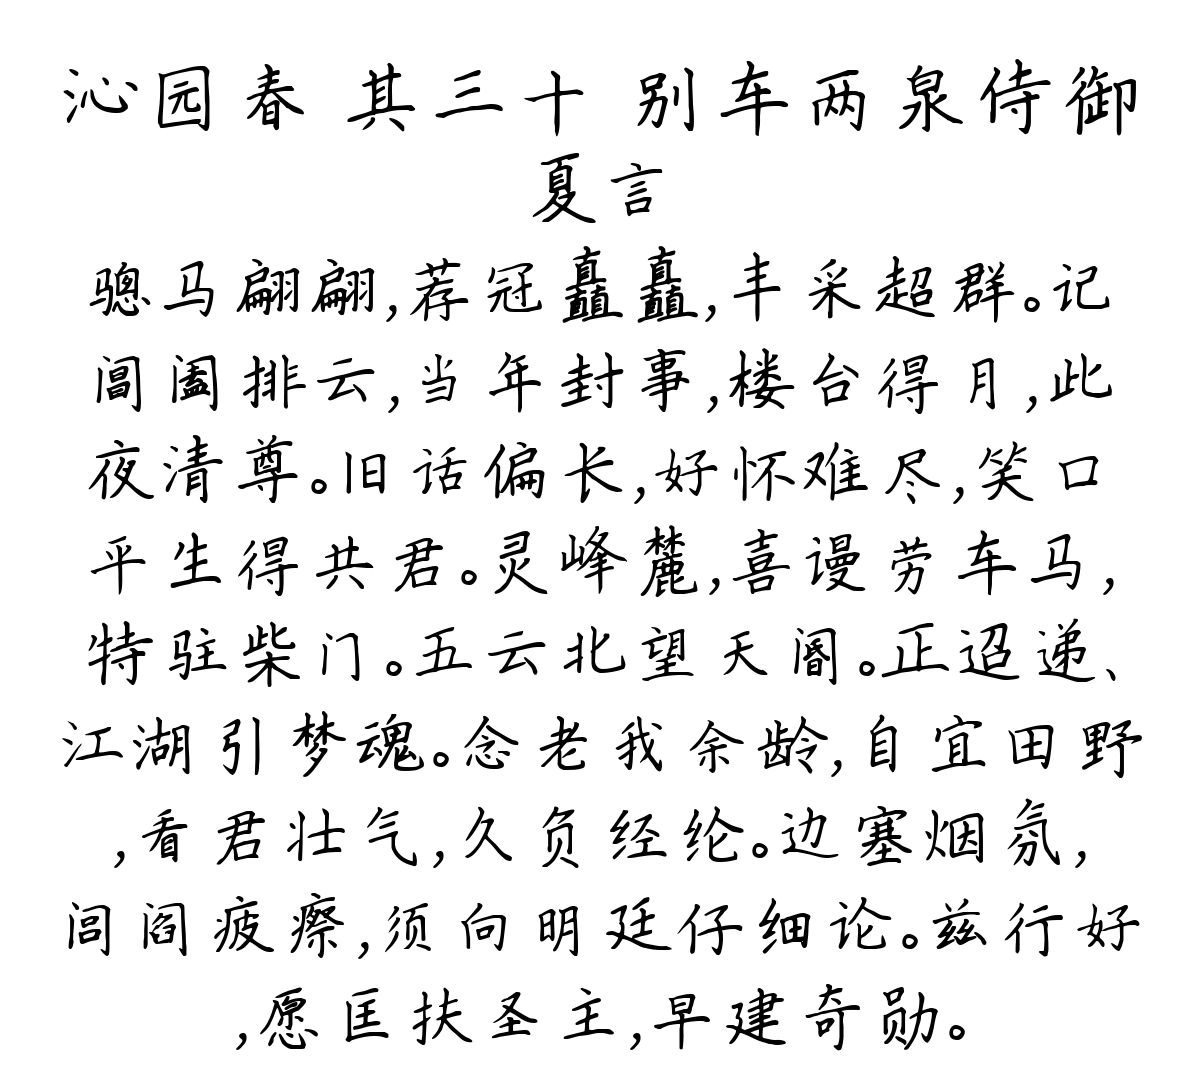 沁园春 其三十 别车两泉侍御
夏言
骢马翩翩,荐冠矗矗,丰采超群。记
阊阖排云,当年封事,楼台得月,此
夜清尊。旧话偏长,好怀难尽,笑口
平生得共君。灵峰麓,喜谩劳车马,
特驻柴门。五云北望天阍。正迢递、
江湖引梦魂。念老我余龄,自宜田野
,看君壮气,久负经纶。边塞烟氛,
闾阎疲瘵,须向明廷仔细论。兹行好
,愿匡扶圣主,早建奇勋。